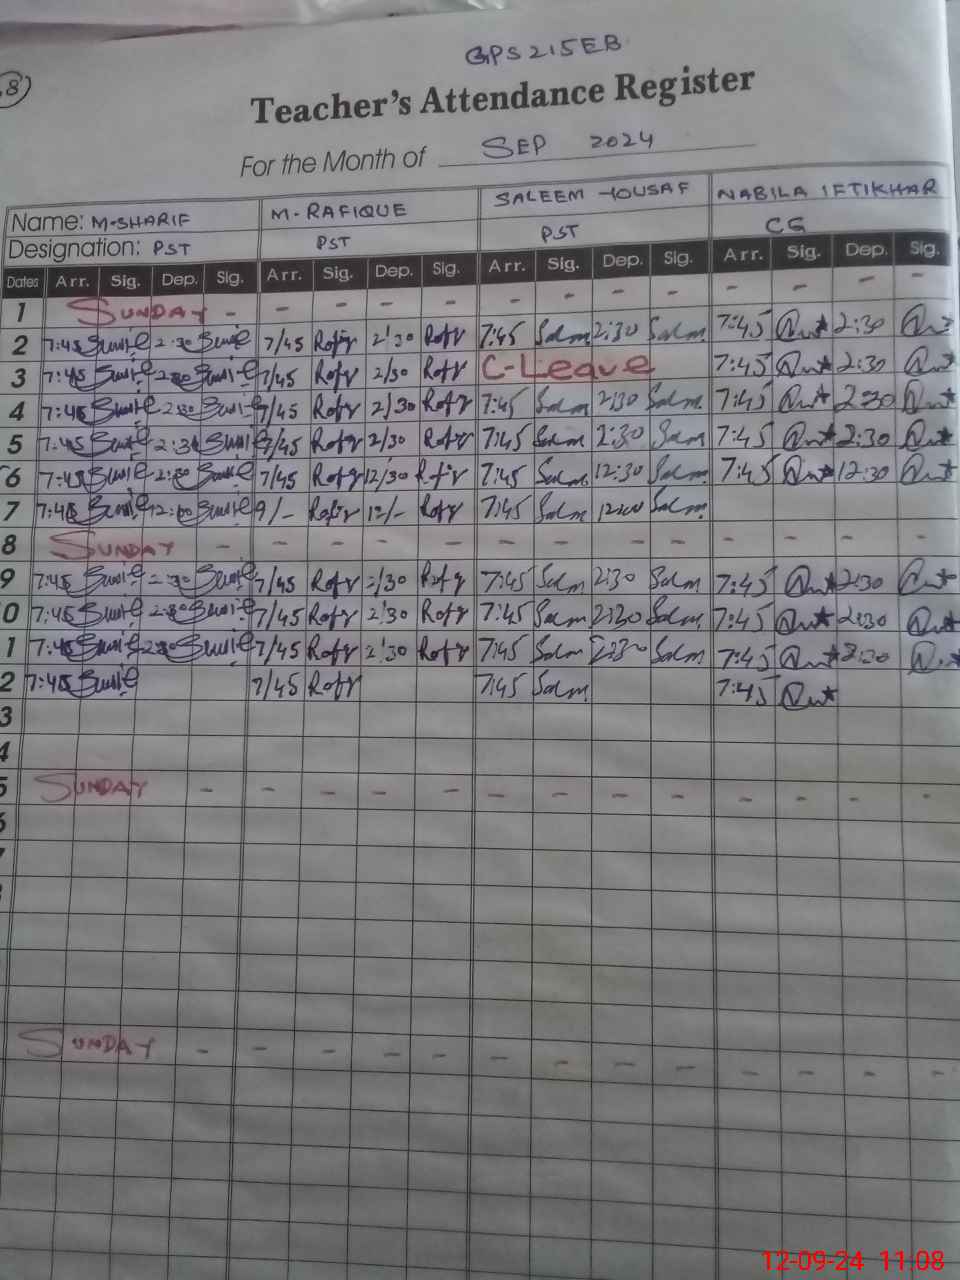 8
GPS 215EB
Teacher's Attendance Register
For the Month of SEP 2024
Name: M-SHARIF M-RAFIQUE SALEEM YOUSAF NABILA IFTIKHAR
Designation: PST PST PST CG
Dates Arr. Sig. Dep. Sig. Arr. Sig. Dep. Sig. Arr. Sig. Dep. Sig. Arr. Sig. Dep. Sig.
1 SUNDAY - - - - - - - - - - - - -
2 7:45 2:30 7/45 Rafiq 2:30 Rafiq 7:45 Salm 2:30 Salm 7:45 2:30
3 7:45 2:30 7/45 Rafiq 2/30 Rafiq C-Leave 7:45 2:30
4 7:45 2:30 7/45 Rafiq 2/30 Rafiq 7:45 Salm 2:30 Salm 7:45 2:30
5 7:45 2:30 7/45 Rafiq 2/30 Rafiq 7:45 Salm 2:30 Salm 7:45 2:30
6 7:45 7/45 Rafiq 12/30 Rafiq 7:45 Salm 12:30 Salm 7:45 12:30
7 7:45 12:00 9/- Rafiq 12/- Rafiq 7:45 Salm 12:00 Salm
8 SUNDAY - - - - - - - - - - - - -
9 7:45 2:30 7/45 Rafiq 2/30 Rafiq 7:45 Salm 2:30 Salm 7:45 2:30
0 7:45 2:30 7/45 Rafiq 2:30 Rafiq 7:45 Salm 2:30 Salm 7:45 2:30
1 7:45 2:30 7/45 Rafiq 2:30 Rafiq 7:45 Salm 2:30 Salm 7:45 2:30
2 7:45 7/45 Rafiq 7:45 Salm 7:45
3
4
5 SUNDAY - - - - - - - - - - - - -
6
SUNDAY - - - - - - - - - - - - -
12-09-24 11:08